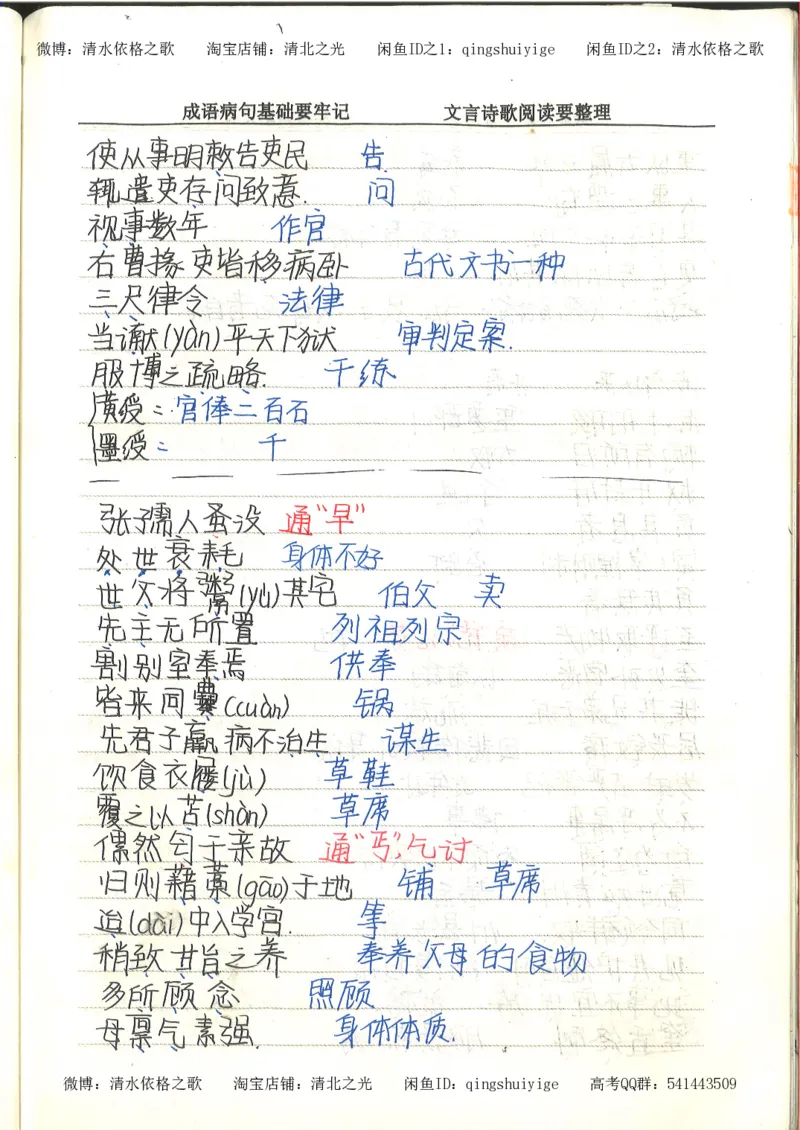 微博：清水依格之歌 淘宝店铺：清北之光 闲鱼ID之1：qingshuiyige 闲鱼ID之2：清水依格之歌
成语病句基础要牢记 文言诗歌阅读要整理
使从事明敕告吏民 告
辄遣吏存问致意. 问
视事数年 作官
右曹掾史皆移病卧 古代文书一种
三尺律令 法律
当谳(yàn)平天下狱 审判定案.
服博之疏略. 干练
黄绶：官俸三百石
墨绶： 千
张孺人蚤没 通“早”
处世衰耗 身体不好
世父将鬻(yù)其宅 伯父 卖
先主无所置 列祖列宗
割别室奉焉 供奉
皆来同爨(cuàn) 锅
先君子羸病不治生. 谋生
饮食衣屦(jù) 草鞋
覆之以苫(shàn) 草席
偶然匄于亲故 通“丐”，乞讨
归则藉藁(gǎo)于地 铺 草席
迨(dài)中入学宫. 等
稍致甘旨之养 奉养父母的食物
多所顾念 照顾
母禀气素强. 身体体质.
微博：清水依格之歌 淘宝店铺：清北之光 闲鱼ID：qingshuiyige 高考QQ群：541443509